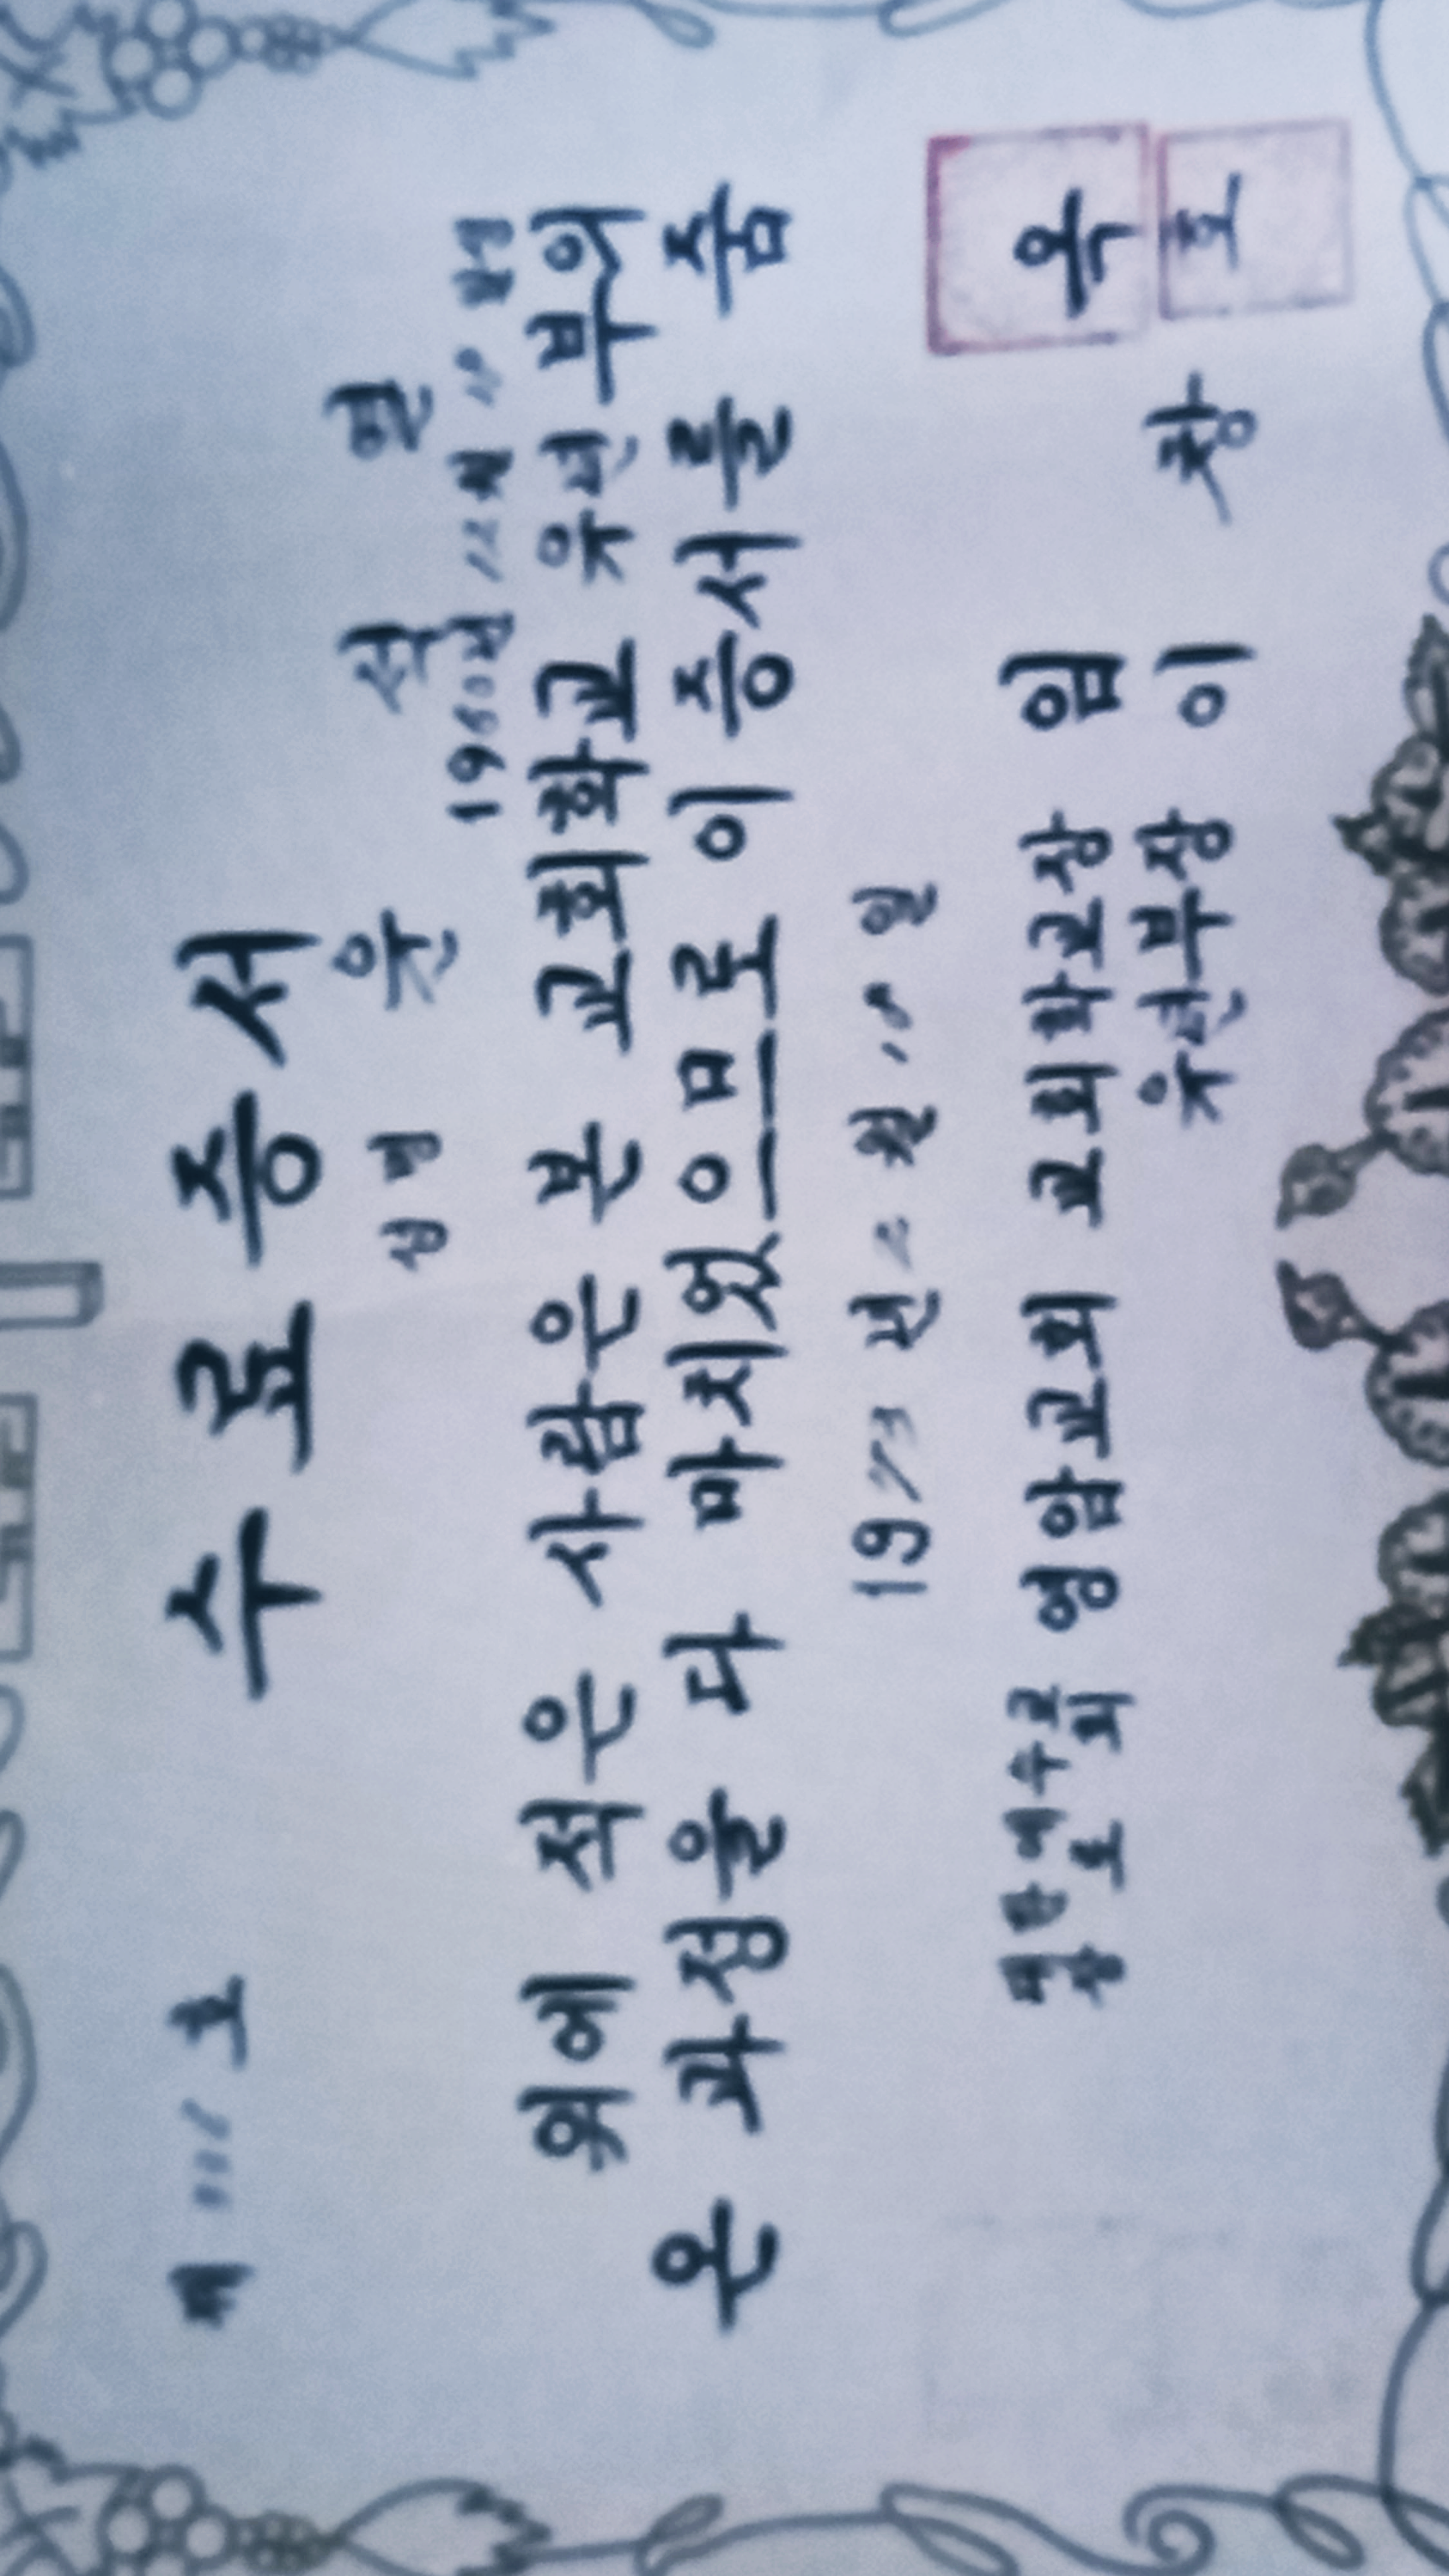 제 호
수료증서
성명 윤 석 열
1960년 12월 18일생
위에 적은 사람은 본 교회학교 유년부의
온 과정을 다 마치었으므로 이 증서를 줌
197 년 2 월 18 일
대한예수교
장로회 영암교회 교회학교장 임 옥
유년부장 이 장 호